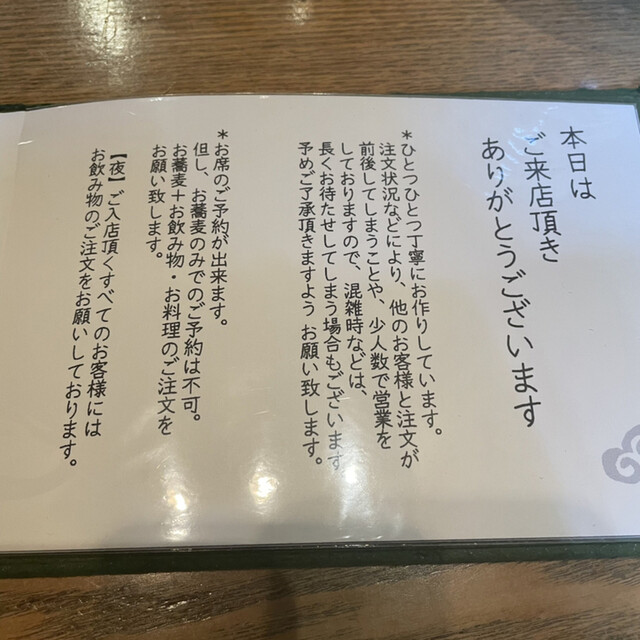 本日は
ご来店頂き
ありがとうございます
*ひとつひとつ丁寧にお作りしています。
注文状況などにより、他のお客様と注文が
前後してしまうことや、少人数で営業を
しておりますので、混雑時などは、
長くお待たせしてしまう場合もございます
予めご了承頂きますよう お願い致します。
*お席のご予約が出来ます。
但し、お蕎麦のみでのご予約は不可。
お蕎麦+お飲み物・お料理のご注文を
お願い致します。
【夜】ご入店頂くすべてのお客様には
お飲み物のご注文をお願いしております。